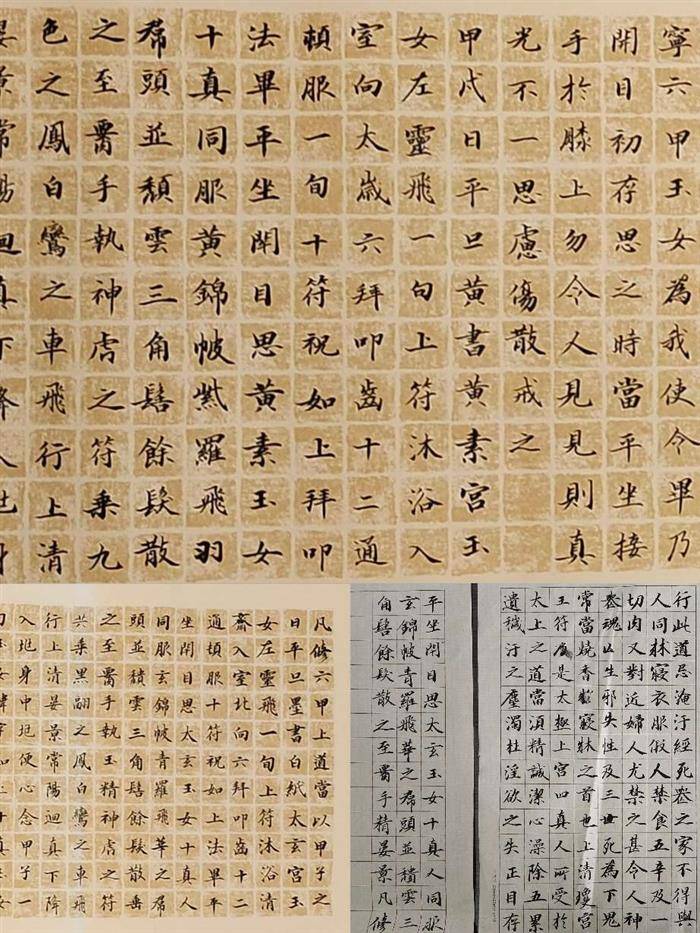 寧六甲玉女為我使令畢乃
開目初存思之時當平坐接
手於膝上勿令人見見則真
光不一思慮傷散戒之
甲戌日平旦黃書黃素宮玉
女左靈飛一旬上符沐浴入
室向太歲六拜叩齒十二通
頓服一旬十符祝如上拜叩
法畢平坐閉目思黃素玉女
十真同服黃錦帔紫羅飛羽
帬頭並頹雲三角髻餘髮散
之至手執神虎之符乘九
色之鳳白鸞之車飛行上清
凡修六甲上道當以甲子之
日平旦墨書白紙太玄宮玉
女左靈飛一旬上符沐浴清
齋入室北向六拜叩齒十二
通頓服十符祝如上法畢平
坐閉目思太玄玉女十真人
同服玄錦帔青羅飛華之帬
頭並積雲三角髻餘髮散垂
之至手執玉精神虎之符
共乘黑翮之鳳白鸞之車飛
行上清晏景常陽迴真下降
入地身中地便心念甲子一
行此道忌淹汙經死喪之家不得與
人同牀寢衣服假人禁食五辛及一
切肉又對近婦人尤禁之甚令人神
喪魂亡生邪失性及三世死為下鬼
常當燒香於寢牀之首也上清瓊宮
玉符乃是太極上宮四真人所受於
太上之道當須精誠潔心澡除五累
遺穢汙之塵濁杜淫欲之失正目存
平坐閉目思太玄玉女十真人同服
玄錦帔青羅飛華之帬頭並積雲三
角髻餘髮散之至手精晏景凡修